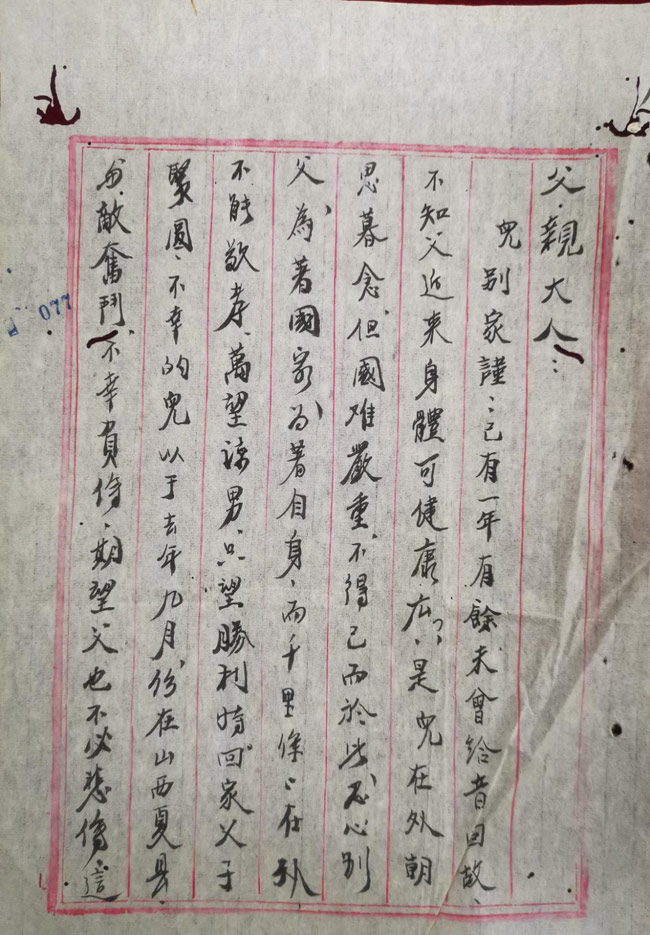 父親大人：
兒别家謹、已有一年有餘未曾給音回故、
不知父近来身體可健康広？、是兒在外朝
思暮念、但國难嚴重、不得已而於此、忍心别
父、為著國家、为著自身、而千里條、在外
不能敬孝、萬望諒男、只望勝利時回家父子
聚圓、不幸的兒以于去年九月份在山西夏县、
与敵奮鬥、不幸負傷、期望父也不必悲傷、這
077